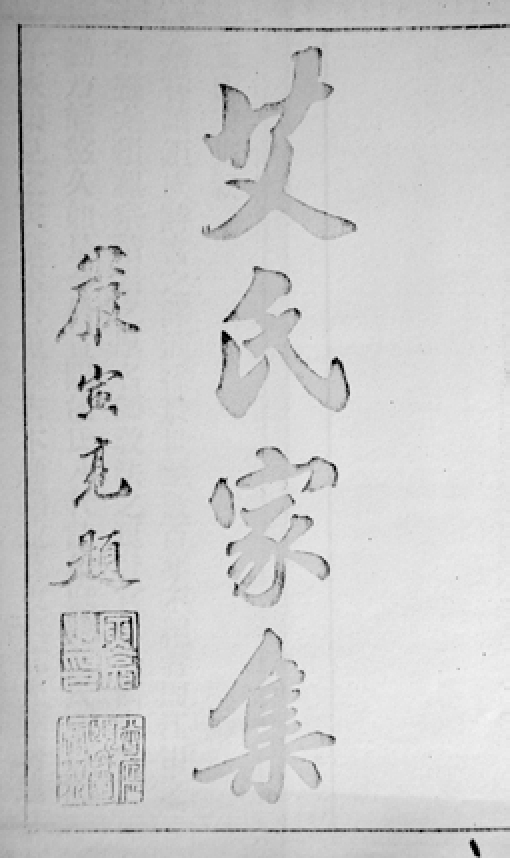 艾氏家集
嚴寅亮題